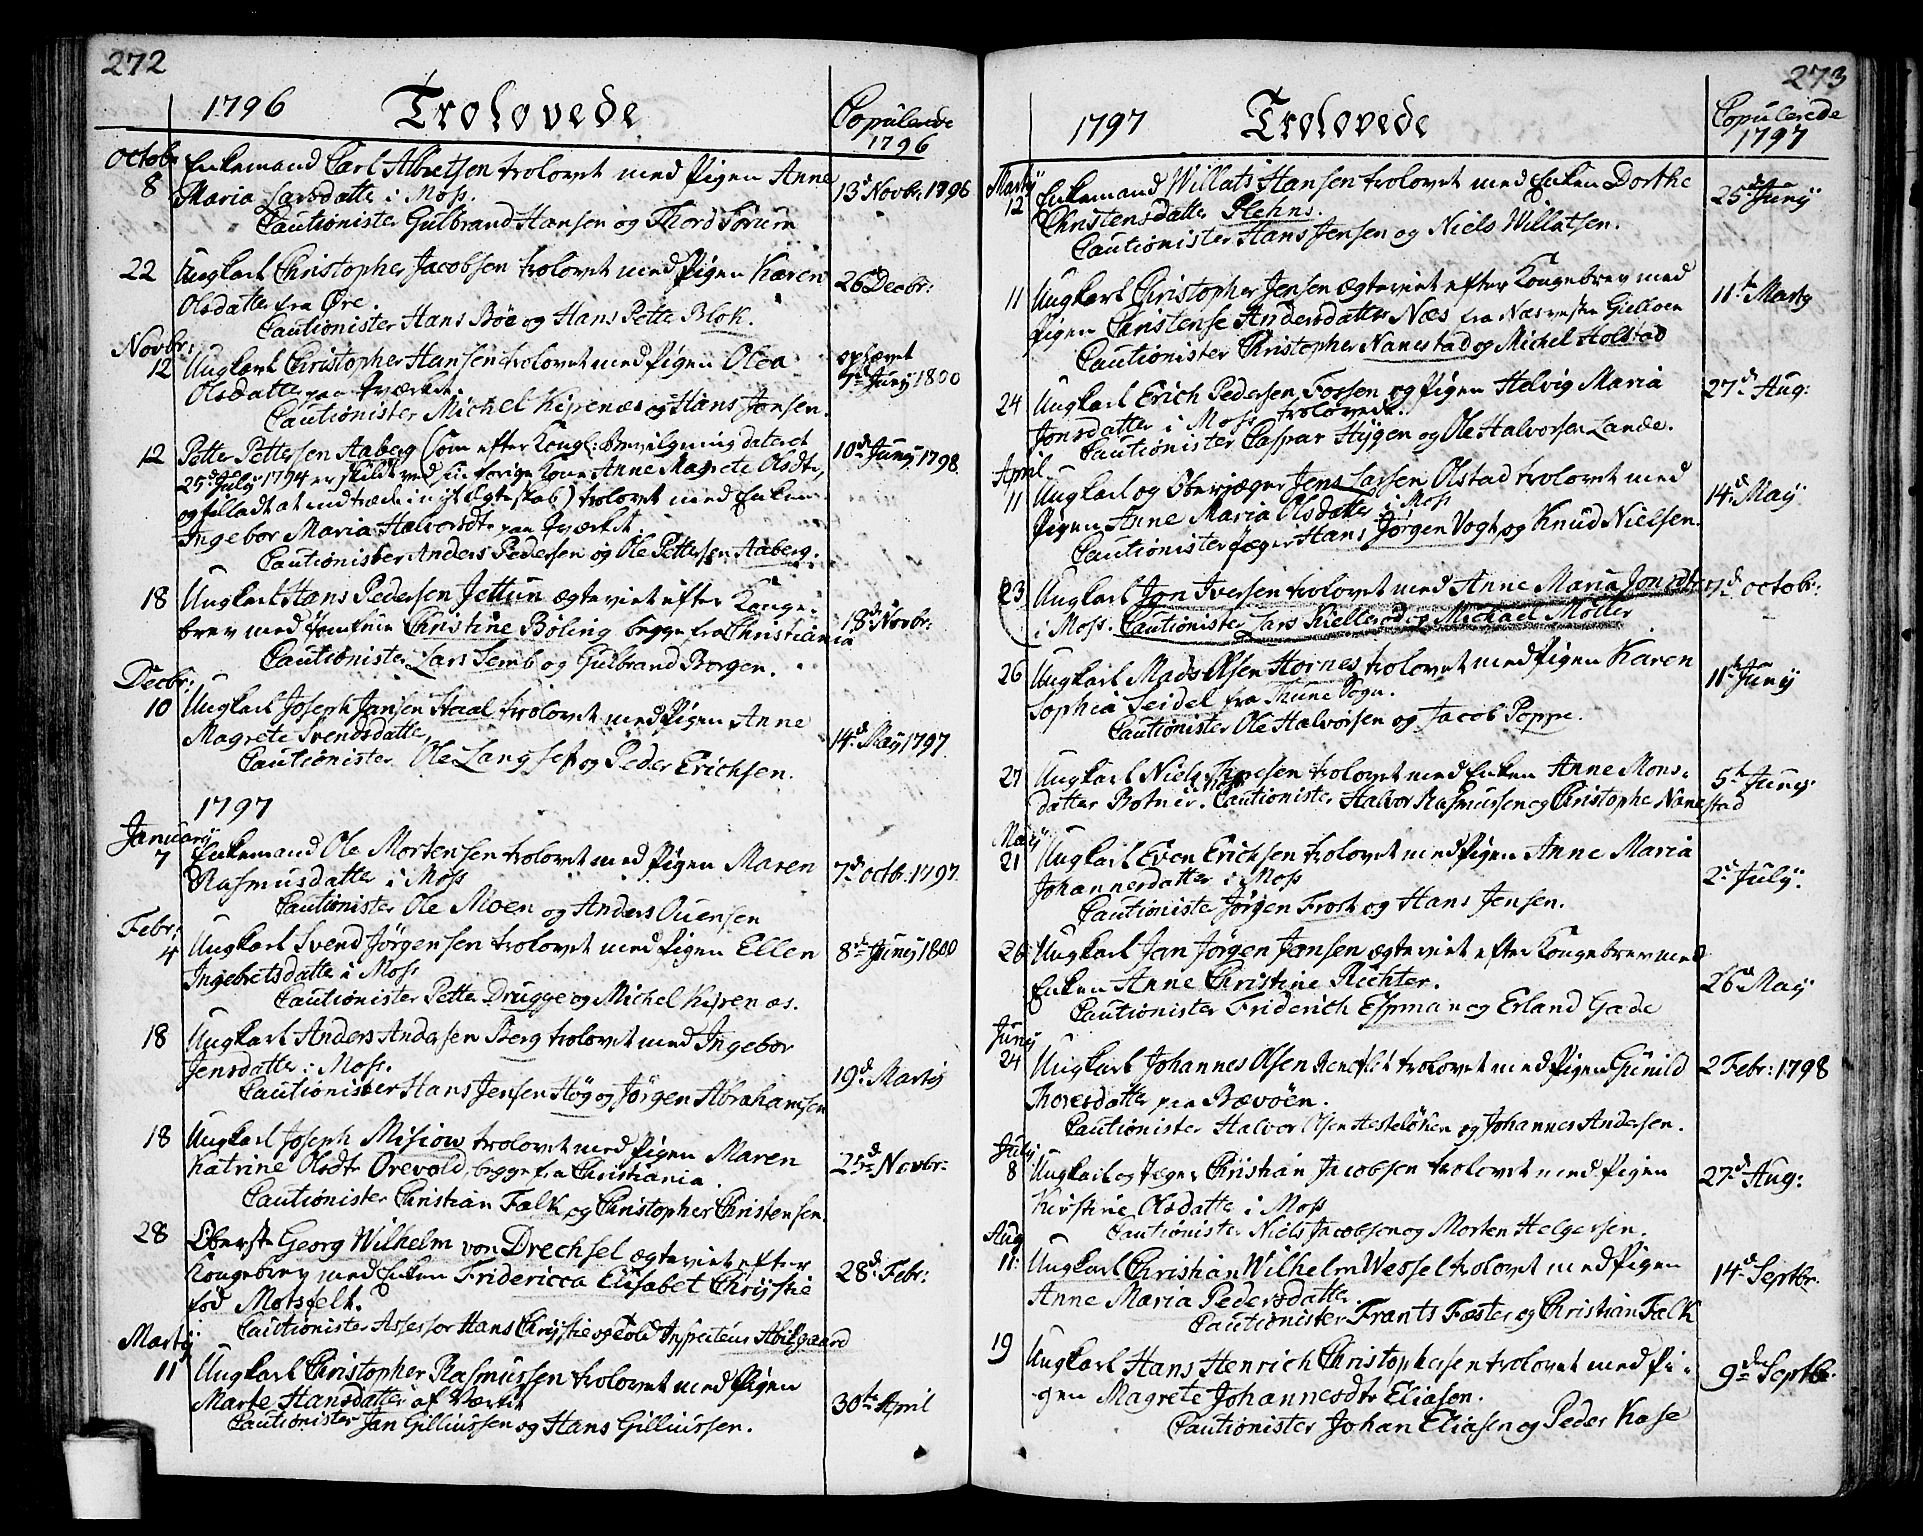 272
1796 Trolovede Copulerede
1796
Octobr
8 Enkemand Carl Albretsen trolovet med Pigen Anne
Maria Larsdatter i Moss. 13d Novbr: 1796
Cautionister Gulbrand Hansen og Thord Sørum
22 Ungkarl Christopher Jacobsen trolovet med Pigen Karen
Olsdatter fra Øre. 26 Decbr:
Cautionister Hans Böe og Hans Petter Blok.
Novbr:
12 Ungkarl Christopher Hansen trolovet med Pigen Olea
Olsdatter paa Værket. ophævet 7d Juny 1800
Cautionister Michel Kirenæs og Hans Jensen.
12 Petter Pettersen Aaberg (som efter Kongl: Bevilgning dateret
25d July 1794 er skildt ved sin forrige Kone Anne Magrete Olsdtr, 10d Juny 1798
og tilladt at indtræde i nyt Ægteskab) trolovet med Enken
Ingebor Maria Halvorsdtr paa Værket.
Cautionister Anders Pedersen og Ole Pettersen Aaberg.
18 Ungkarl Hans Pedersen Jettun ægteviet efter Konge-
brev med Jomfrue Christine Böling begge fra Christiania 18d Novbr:
Cautionister Lars Semb og Gulbrand Borgen.
Decbr:
10 Ungkarl Joseph Jansen Staal trolovet med Pigen Anne
Magrete Svendsdatter, 14d May 1797
Cautionister Ole Langsef og Peder Erichsen.
1797
January
7 Enkemand Ole Mortensen trolovet med Pigen Maren
Rasmusdatter i Moss 7d octb: 1797
Cautionister Ole Moen og Anders Ouensen
Febr:
4 Ungkarl Svend Jörgensen trolovet med Pigen Ellen
Ingebretsdatter i Moss 8de Juny 1800
Cautionister Petter Drugge og Michel Kirenæs.
18 Ungkarl Anders Andersen Berg trolovet med Ingebor
Jensdatter i Moss. 19d Marty
Cautionister Hans Jensen Hög og Jörgen Abrahamsen
18 Ungkarl Joseph Misiow trolovet med Pigen Maren
Katrine Olsdtr Orevold, begge fra Christiania. 25d Novbr:
Cautionister Christian Falk og Christopher Christensen.
28 Oberste Georg Wilhelm von Drechsel ægteviet efter
Kongebrev med Enken Fridericca Elisabet Chrystie 28d Febr:
föd Motsfelt.
Cautionister Assessor Hans Chrystie og Told Inspecteur Abilgaard
Marty
11 Ungkarl Christopher Rasmussen trolovet med Pigen
Marte Hansdatter af Værket 30te April
Cautionister Jan Gilliussen og Hans Gilliussen.
273
1797 Trolovede Copulerede
1797
Marty
12 Enkemand Willats Hansen trolovet med Enken Dorthe
Christensdatter Plehns. 25d Juny
Cautionister Hans Jensen og Niels Willatsen.
11 Ungkarl Christopher Jensen ægteviet efter Kongebrev med
Pigen Christense Andersdatter Næs fra Næs vestre Gielløen 11te Marty
Cautionister Christopher Nanestad og Michel Holstad
24 Ungkarl Erich Pedersen Fossen og Pigen Helvig Maria
Jonsdatter i Moss trolovede. 27d Aug:
Cautionister Caspar Hÿgen og Ole Halvorsen Lande.
April
11 Ungkarl og Oberjæger Jens Larsen Olstad trolovet med
Pigen Anne Maria Olsdatter i Moss 14d May
Cautionister Jæger Hans Jørgen Vogt og Knud Nielsen.
23 Ungkarl Jon Iversen trolovet med Anne Maria Jonsdtr 7d octob:
i Moss. Cautionister Lars Kielleröd og Michael Möller
26 Ungkarl Mads Olsen Hornes trolovet med Pigen Karen
Sophia Seidel fra Thune Sogn. 11te Juny
Cautionister Ole Halvorsen og Jacob Poppe.
27 Ungkarl Niels Thoresen trolovet med Enken Anne Mons-
datter Botner. Cautionister Halvor Rasmussen og Christophe Nanestad 5te Juny
May
21 Ungkarl Even Erichsen trolovet med Pigen Anne Maria
Johannesdatter i Moss 2d July.
Cautioniste Jörgen Frost og Hans Jensen.
26 Ungkarl Jan Jörgen Jansen ægteviet efter Kongebrev med
Enken Anne Christine Richter. 26d May
Cautionister Friderich Essman og Erland Gade
Juny
24 Ungkarl Johannes Olsen trolovet med Pigen Gunild 2 Febr: 1798
Thoresdatter paa Bævöen.
Cautionister Halvor Olsen Hestelöken og Johannes Andersen.
July
8 Ungkarl og Jæger Christian Jacobsen trolovet med Pigen
Kirstine Olsdatter i Moss 27d Aug:
Cautionister Niels Jacobsen og Morten Helgersen.
Aug
11 Ungkarl Christian Wilhelm Wessel trolovet med Pigen
Anne Maria Pedersdatter. 14d Septbr.
Cautionister Frants Fæster og Christian Falk
19 Ungkarl Hans Henrich Christophersen trolovet med Pi-
gen Magrete Johannesdtr Eliasen. 9de Septbr.
Cautionister Johan Eliasen og Peder Kase